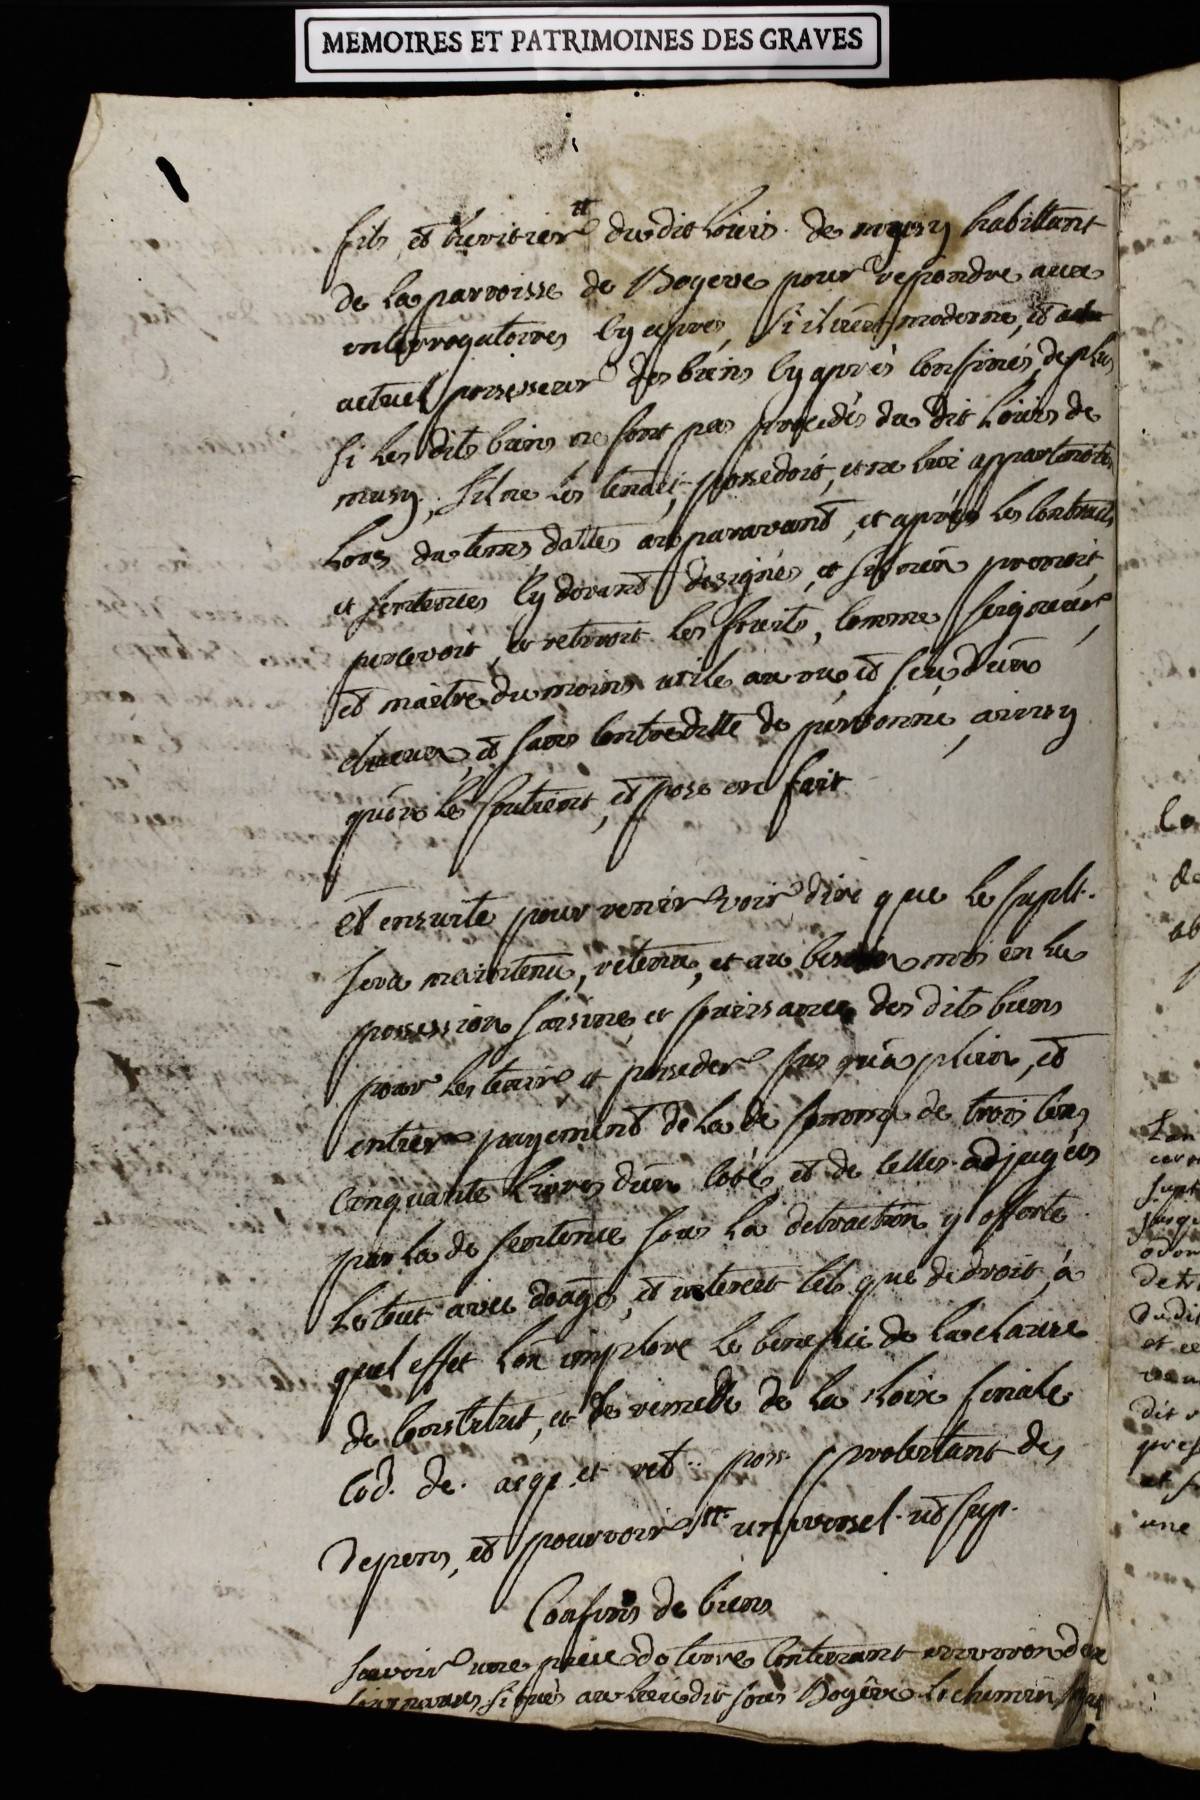 MEMOIRES ET PATRIMOINES DES GRAVES
fils, et heritier du dit Louis de musy habittant
de la parroisse de Bogeve pour repondre aux
interrogatoires cy apres, s'il n'est moderne, et
actuel possesseur des biens cy après confinés, de plus
si les dits biens ne sont pas procedés du dit Louis de
musy, s'il ne les tenait, possedoit, et ne lui appartenoits
lors du tems dattes auparavant, et après les contracts
et sentences cy dovant designés, et s'il n'en prenoit,
percevoit, et retiroit les fruits, comme seigneur,
et maitre du moins utile au vu, et sçu d'un
chacun, et sans contreditte de personne, ainsy
qu'on le soutient, et pose en fait
Et ensuite pour venir voir dire que le suplt.
sera maintenu, retenu, et au besoin mis en la
possession saisine, et jouissance des dits biens
pour les tenir, et posseder jusqu'a plein, et
entier payement de la de somme de trois cens
cinquante livres d'un coté, et de celles adjugées
par la de sentence sous la detraction y offerte
le tout avec domages, et interest tels que de droit, à
quel effet l'on implore le benefice de la clause
de constitut, et le remede de la Loix finale
Cod. de. acqr. et ret. poss. protestant des
depens, et pourvoir universel. ut sup.
Confins de biens
sçavoir une piece de terre contenant environ deux
journaux située au lieu dit sous Bogève le chemin